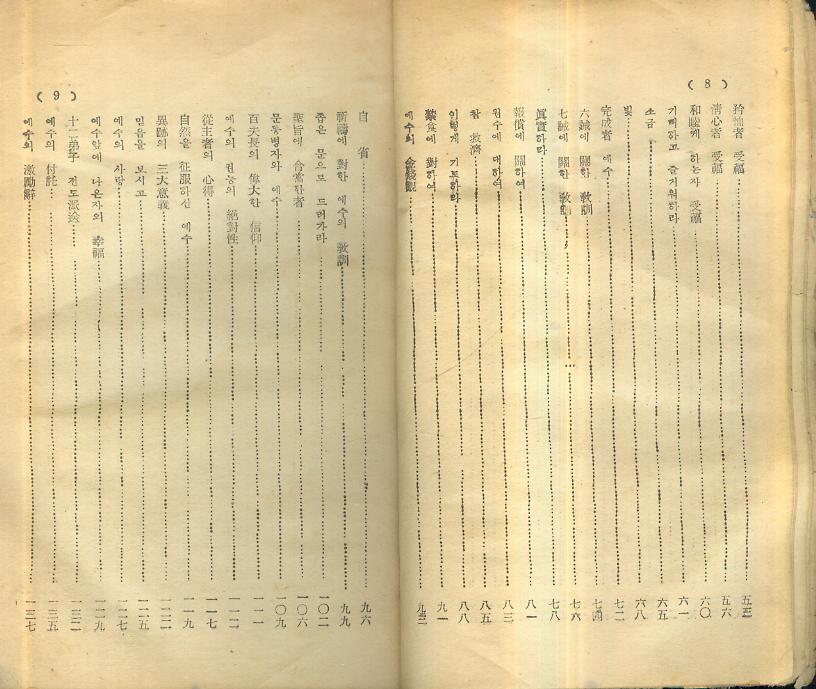 ( 8 )
矜恤者 受福 五三
淸心者 受福 五六
和睦케 하는자 受福 六〇
기뻐하고 즐거워하라 六一
소금 六五
빛 六八
完成者 예수 七二
六誡에 關한 敎訓 七四
七誡에 關한 敎訓 七六
眞實하라 七八
報償에 關하여 八一
원수에 대하여 八三
참 救濟 八五
이렇게 기도하라 八八
禁食에 對하여 九一
예수의 金錢觀 九三
( 9 )
自 省 九六
祈禱에 對한 예수의 敎訓 九九
좁은 문으로 드러가라 一〇二
聖旨에 合當한者 一〇六
문둥병자와 예수 一〇九
百夫長의 偉大한 信仰 一一一
예수의 권능의 絕對性 一一二
從主者의 心得 一一七
自然을 征服하신 예수 一一九
異跡의 三大意義 一二二
믿음을 보시고 一二五
예수의 사랑 一二七
예수앞에 나온자의 幸福 一二九
十二弟子 전도派送 一三二
예수의 付託 一三五
예수의 激勵辭 一三七